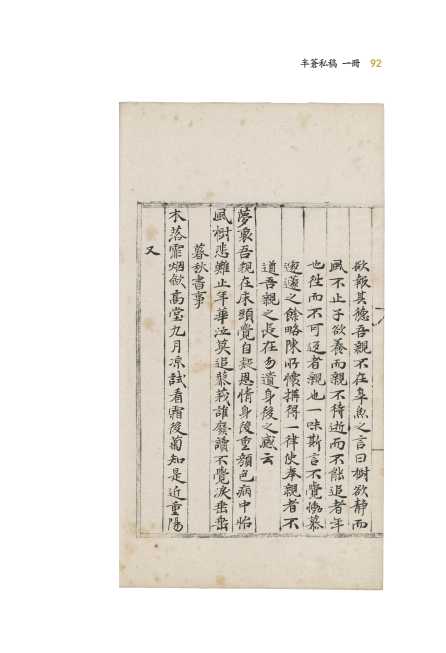 半蒼私稿 一冊 92
欲報其德吾親不在皐魚之言曰樹欲静而
風不止子欲養而親不待逝而不能追者年
也徃而不可返者親也一味斯言不覺慟慕
遑遑之餘略陳所懷搆得一律使奉親者不
道吾親之長在勿遺身後之感云
夢裏吾親在床頭覺自疑恩情身後重顔色病中怡
風樹悲難止年華泣莫追蓼莪誰廢讀不覺淚垂垂
暮秋書事
木落霏烟歛高堂九月凉試看霜後菊知是近重陽
又